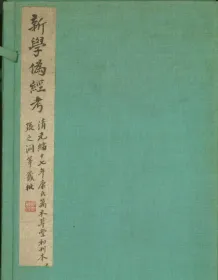 新學偽經考
清光緒十七年康氏萬木草堂初刊本
張之洞單嚴批